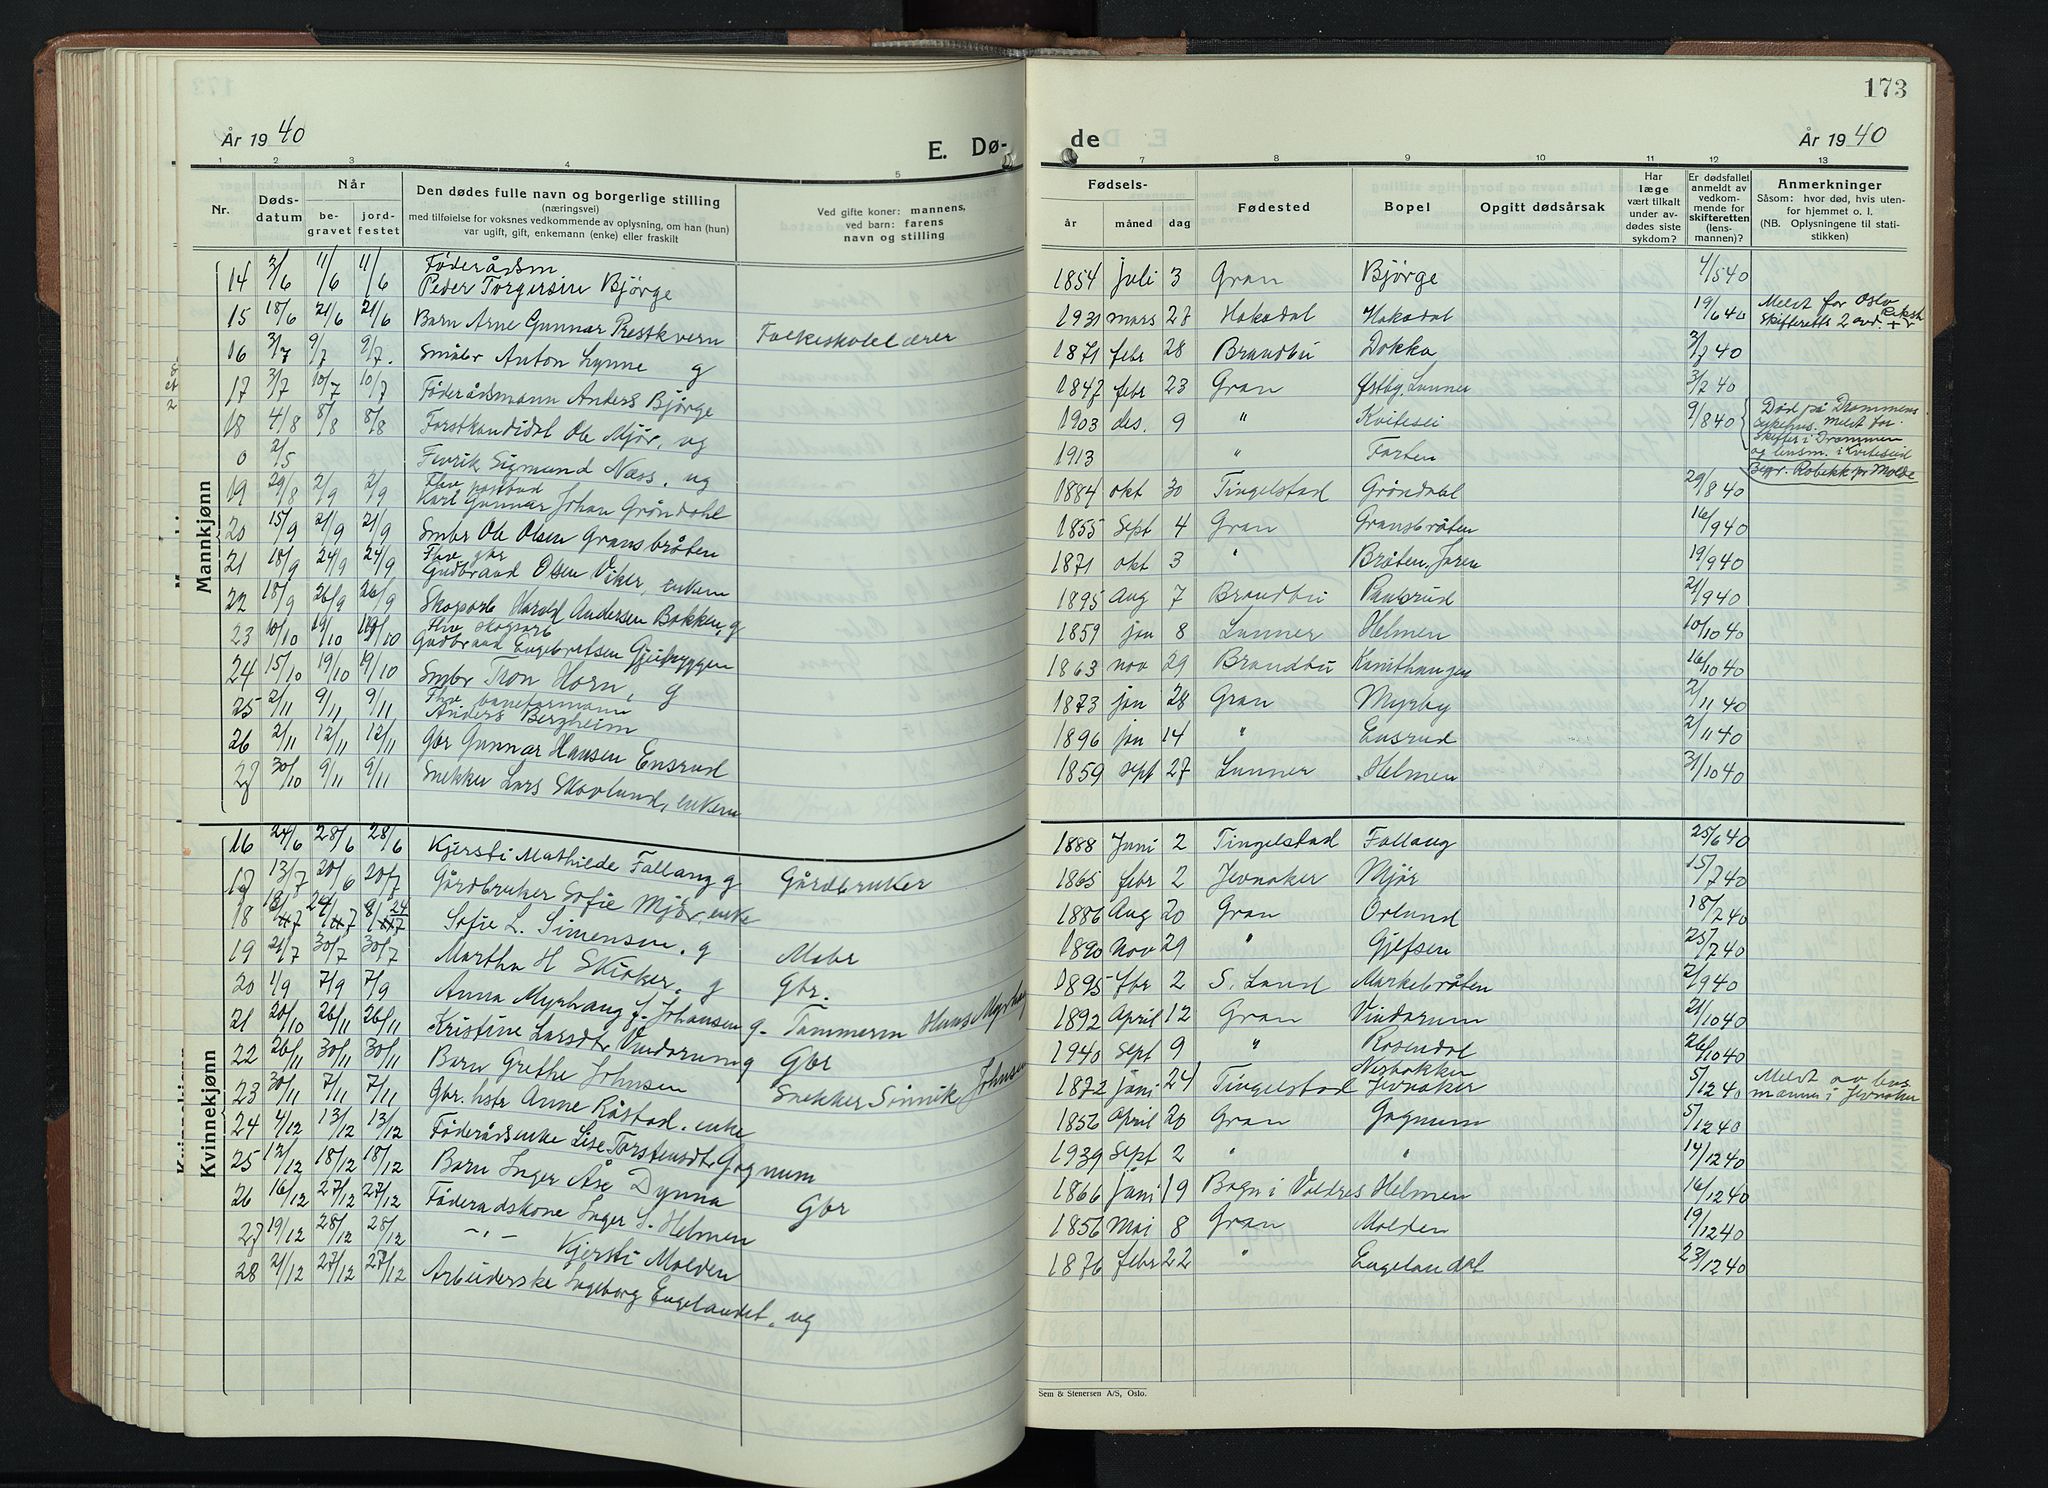 173
År 1940
E. Dø-
de
År 1940
1 2 3 4 5 7 8 9 10 11 12 13
Nr.
Døds-
datum
Når
be-
gravet
jord-
festet
Den dødes fulle navn og borgerlige stilling
(næringsvei)
med tilføielse for voksnes vedkommende av oplysning, om han (hun)
var ugift, gift, enkemann (enke) eller fraskilt
Ved gifte koner: mannens,
ved barn: farens
navn og stilling
Fødsels-
år måned dag
Fødested
Bopel
Opgitt dødsårsak
Har
læge
vært tilkalt
under av-
dødes siste
sykdom?
Er dødsfallet
anmeldt av
vedkom-
mende for
skifteretten
(lens-
mannen)?
Anmerkninger
Såsom: hvor død, hvis uten-
for hjemmet o. l.
(NB. Oplysningene til stati-
stikken)
Mannkjønn
14 3/6 11/6 11/6 Föderådsm Peder Torgersen Bjørge 1854 juli 3 Gran Bjørge 4/5 40
15 18/6 21/6 21/6 Barn Arne Gunnar Prestkvern Folkeskolelærer 1931 mars 27 Hakadal Hakadal 19/6 40 Meldt for Oslo
Skifteretts 2 avd.
16 3/7 9/7 9/7. Småbr Anton Lynne g 1871 febr 28 Brandbu Dokka 3/7 40
17 3/7 10/7 10/7 Föderådsmann Anders Bjørge 1847 febr 23 Gran Østby, Lunner 3/7 40
18 4/8 8/8 8/8 Forstkandidat Ole Mjør, ug 1903 des. 9 " Kvitesei 9/8 40 Död på Drammens
sykehus. Meldt for
Skifter i Drammen
og lensm. i Kviteseid
0 2/5 Fenrik Sigmund Næss. ug 1913 " Forten Begr. Röbekk pr Molde
19 29/8 2/9 2/9 Fhv postbud Karl Gunnar Johan Gröndahl 1884 okt 30 Tingelstad Gröndahl 29/8 40
20 15/9 21/9 21/9 Smbr Ole Olsen Gransbråten 1855 Sept 4 Gran Gransbråten 16/9 40
21 18/9 24/9 24/9 Fhv gbr Gudbrand Olsen Viker, enkem 1871 okt 3 " Bråten, Jaren 19/9 40
22 18/9 26/9 26/9 Skogsarb Harald Andersen Bakken, g 1895 Aug 7 Brandbu 21/9 40
23 10/10 19/10 19/10 Fhv skogsarb Gudbrand Engebretsen 1859 jan 8 Lunner Helmen 10/10 40
24 15/10 19/10 19/10 Smbr Tron Horn, g 1863 nov 29 Brandbu 16/10 40
25 2/11 9/11 9/11 Fhv baneformann Anders Bergheim 1873 jan 28 Gran Myrby 2/11 40
26 2/11 12/11 12/11 Gbr Gunnar Hansen Ensrud 1896 jan 14 " Ensrud 2/11 40
27 30/10 9/11 9/11 Snekker Lars Skovlund, enkem 1859 sept 27 Lunner Helmen 31/10 40
Kvinnekjønn
16 24/6 28/6 28/6 Kjersti Mathilde Fallang g Gårdbruker 1888 Juni 2 Tingelstad Fallang 25/6 40
17 13/7 20/6 20/7 Gårdbruker Sofie Mjør, enke 1865 febr 2 Jevnaker Mjør 15/7 40
18 18/7 24/7 24/7 Sofie L. Simensen. g Mobr 1886 Aug 20 Gran Orlund 18/7 40
19 21/7 30/7 30/7 Martha H Skiaker. g Gbr. 1890 Nov 29 " Gjefsen 25/7 40
20 1/9 7/9 7/9 Anna Myrhaug f. Johansen g. Tømmerm Hans Myrhaug 1895 fbr 2 S. Land Markebråten 2/9 40
21 20/10 26/11 26/11 Kristine Larsdtr Vindorum g Gbr 1892 April 12 Gran Vindorum 21/10 40
22 26/11 30/11 30/11 Barn Grethe Johnsen Snekker Sinnik Johnsen 1940 Sept 9 " Rosendal 26/10 40
23 30/11 7/11 7/11 Gbr. hstr Anne Råstad. enke 1872 juni 24 Tingelstad Nesbakken Jevnaker 5/12 40 Meldt av lens
mannen i Jevnaker
24 4/12 13/12 13/12 Föderådsenke Lise Torstensdtr Gagnum 1856 April 20 Gran Gagnum 5/12 40
25 13/12 18/12 18/12 Barn Inger Åse Dynna Gbr 1939 Sept 2 " " 14/12 40
26 16/12 27/12 27/12 Föderadskone Inger S. Helmen 1866 juni 19 Bagn i Valdres Helmen 16/12 40
27 19/12 28/12 28/12 -"- Kjersti Molden 1856 Mai 8 Gran Molden 19/12 40
28 21/12 27/12 27/12 Arbeiderske Ingeborg Engelandet, ug 1876 febr 22 " Engelandet 23/12 40
Sem & Stenersen A/S, Oslo.